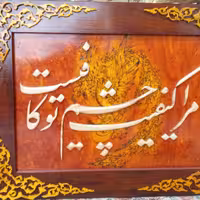 مرا کیفیت چشم تو کافیست